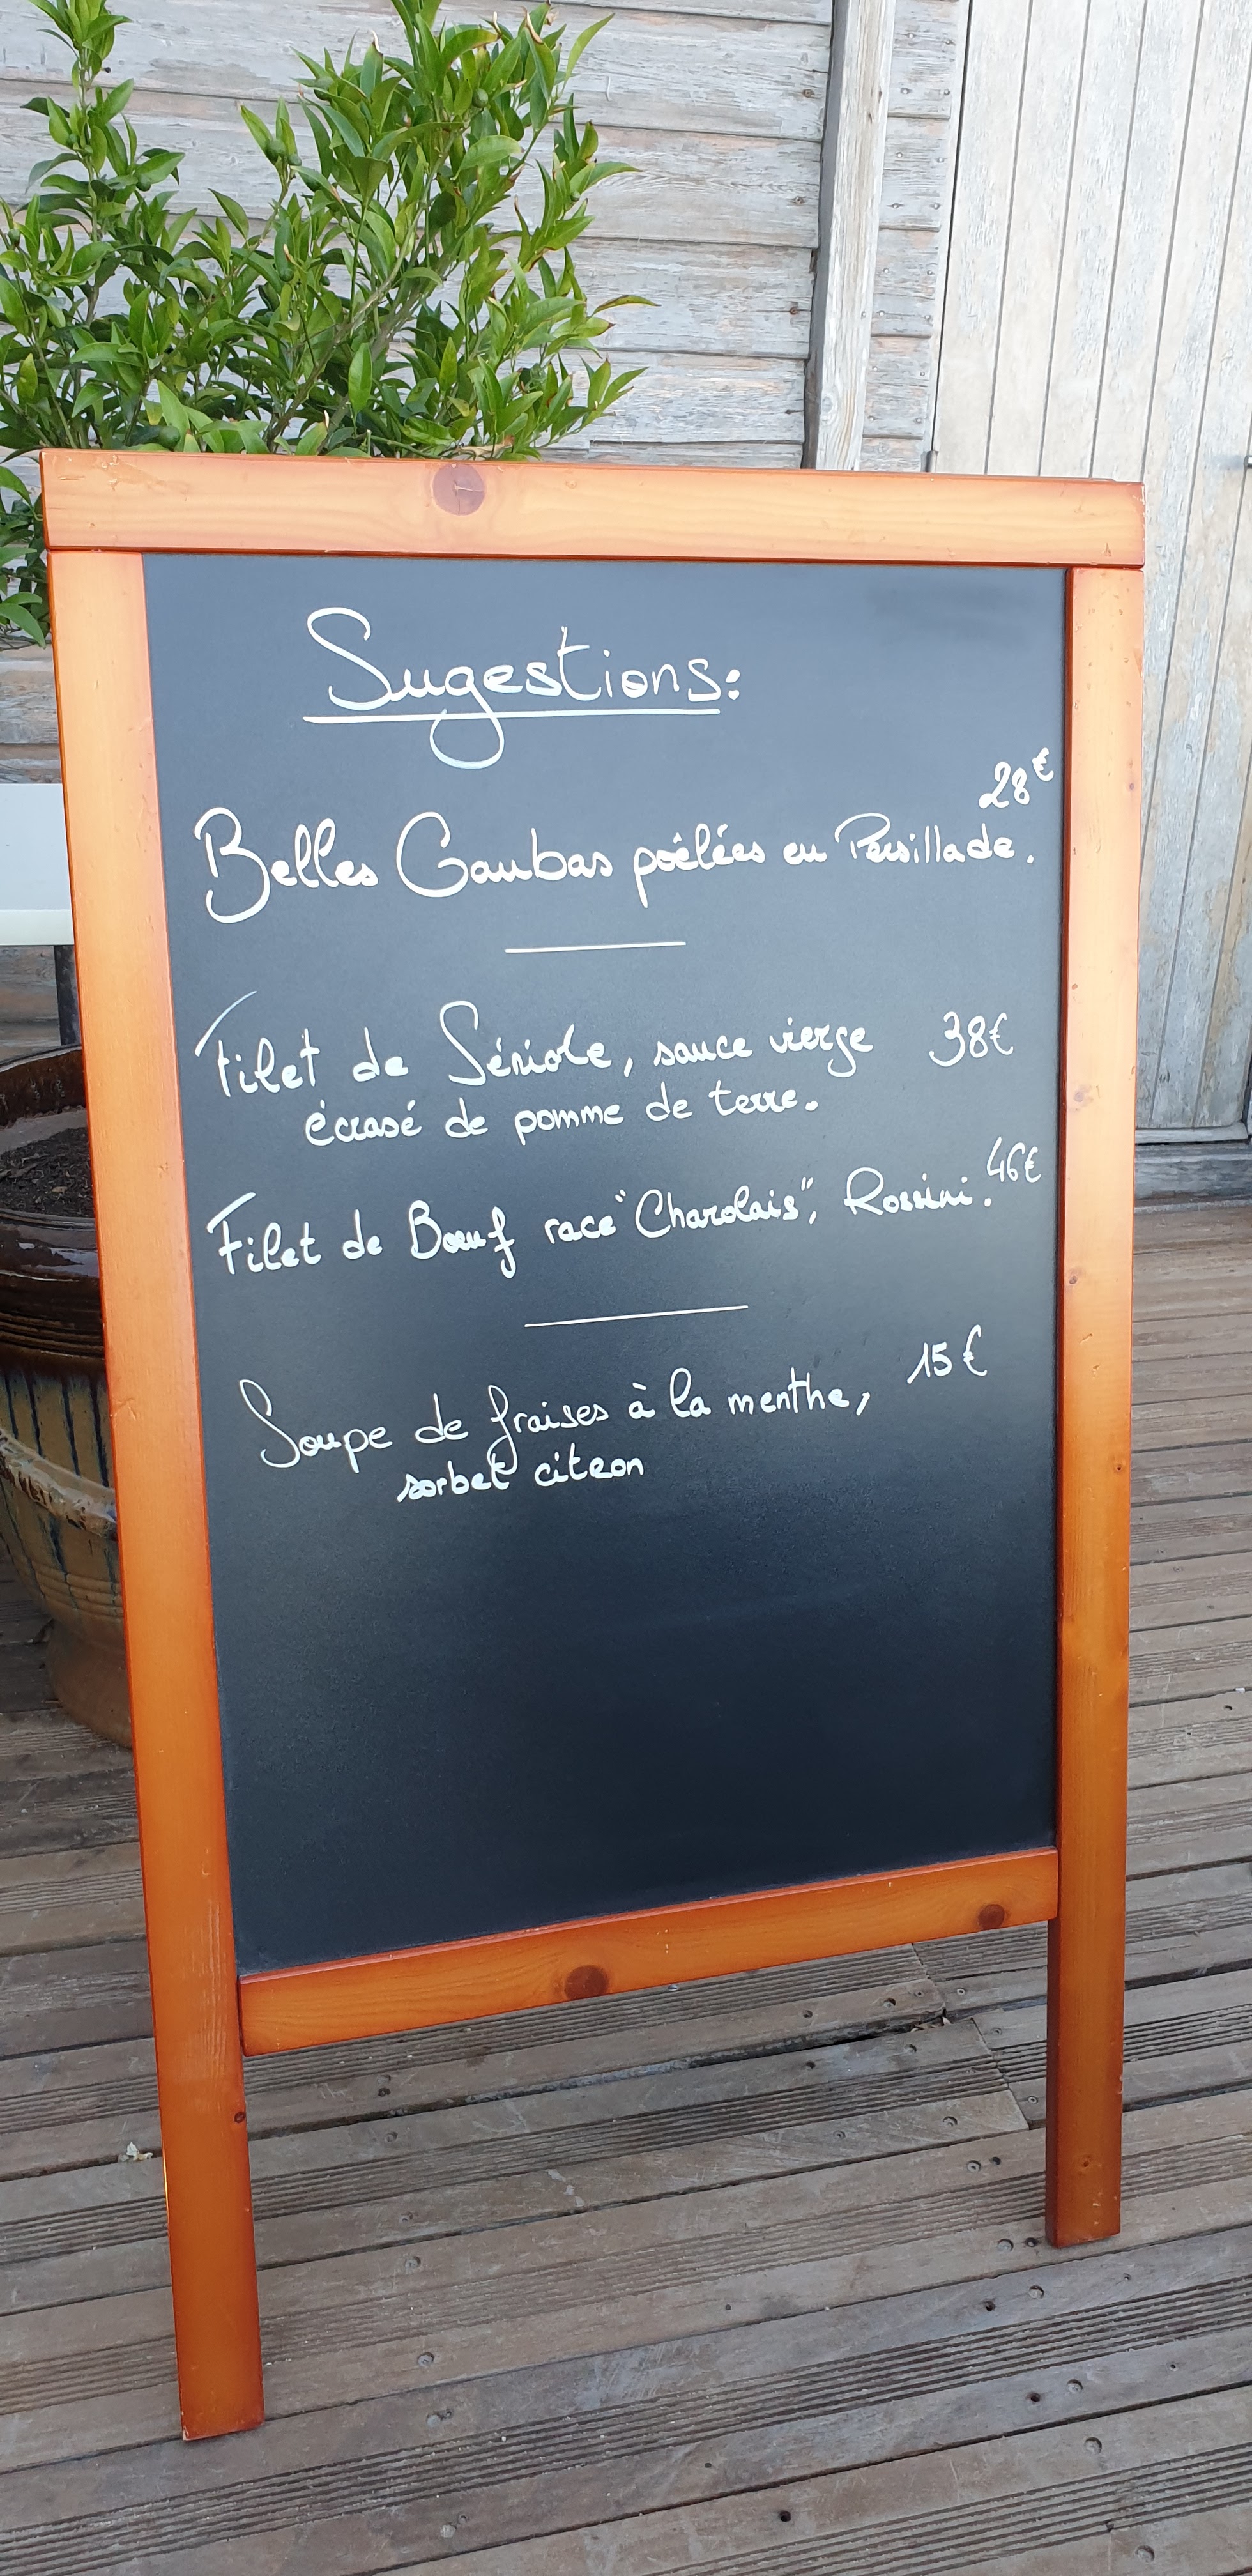 Sugestions:
28€
Belles Gambas poêlées en Persillade.
Filet de Sériole, sauce vierge 38€
écrasé de pomme de terre.
Filet de Bœuf race "Charolais", Rossini. 46€
Soupe de fraises à la menthe, 15€
sorbet citron